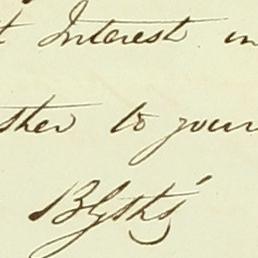 t Interest in
ther to your
Blyth's